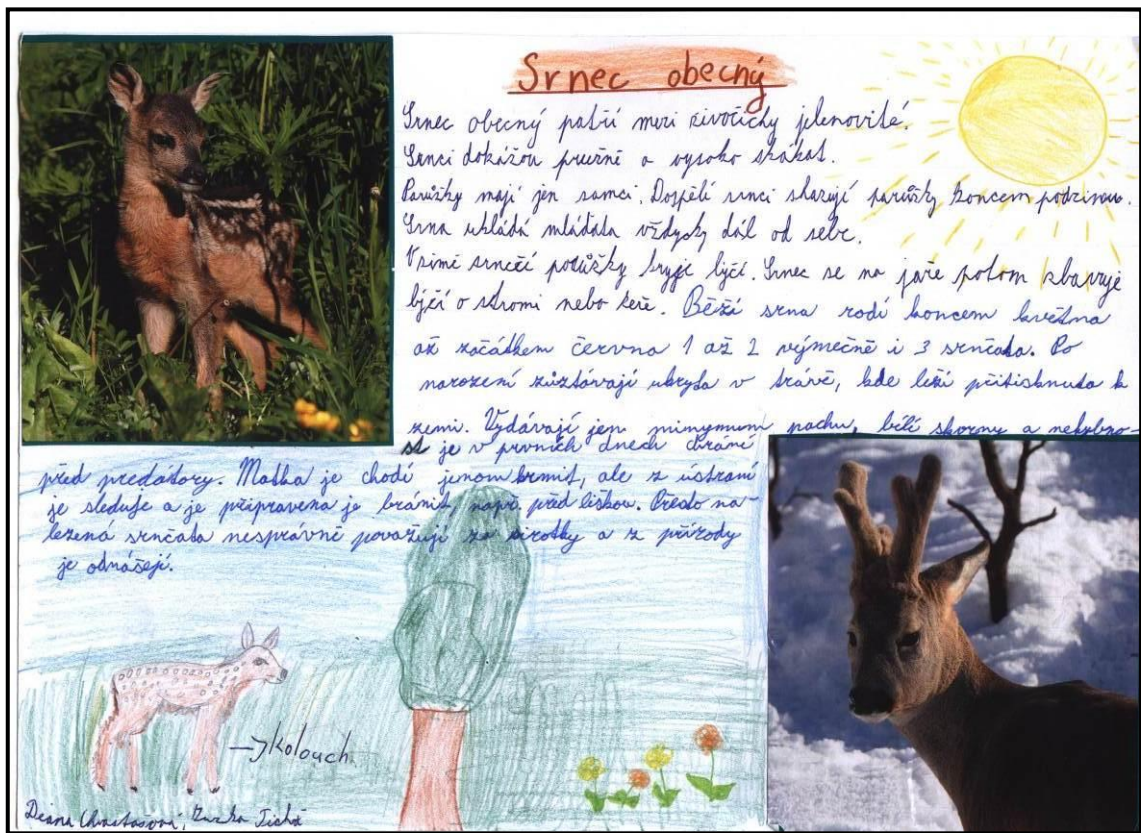 Srnec obecný
Srnec obecný patří mezi živočichy jelenovité.
Srnci dokážou pružně a vysoko skákat.
Parůžky mají jen samci. Dospělí srnci shazují parůžky koncem podzimu.
Srna ukládá mláďata vždycky dál od sebe.
V zimě srnčí parůžky kryje lýčí. Srnec se na jaře potom zbavuje
lýčí o stromi nebo keře. Běží srna rodí koncem května
až začátkem června 1 až 2 výmečně i 3 srnčata. Po
narození zůztávají ukryta v trávě, kde leží přitisknuta k
zemi. Vydávají jen mimymum pachu, bílé skvrny a nehybno-
st je v prvních dnech chrání
před predátory. Matka je chodí jenom krmit, ale z ústraní
je sleduje a je připravena je bránit, např. před liškou. Často na-
lezená srnčata nesprávně považují za sirotky a z přírody
je odnášejí.
kolouch
Diana, Zuzka Tichá